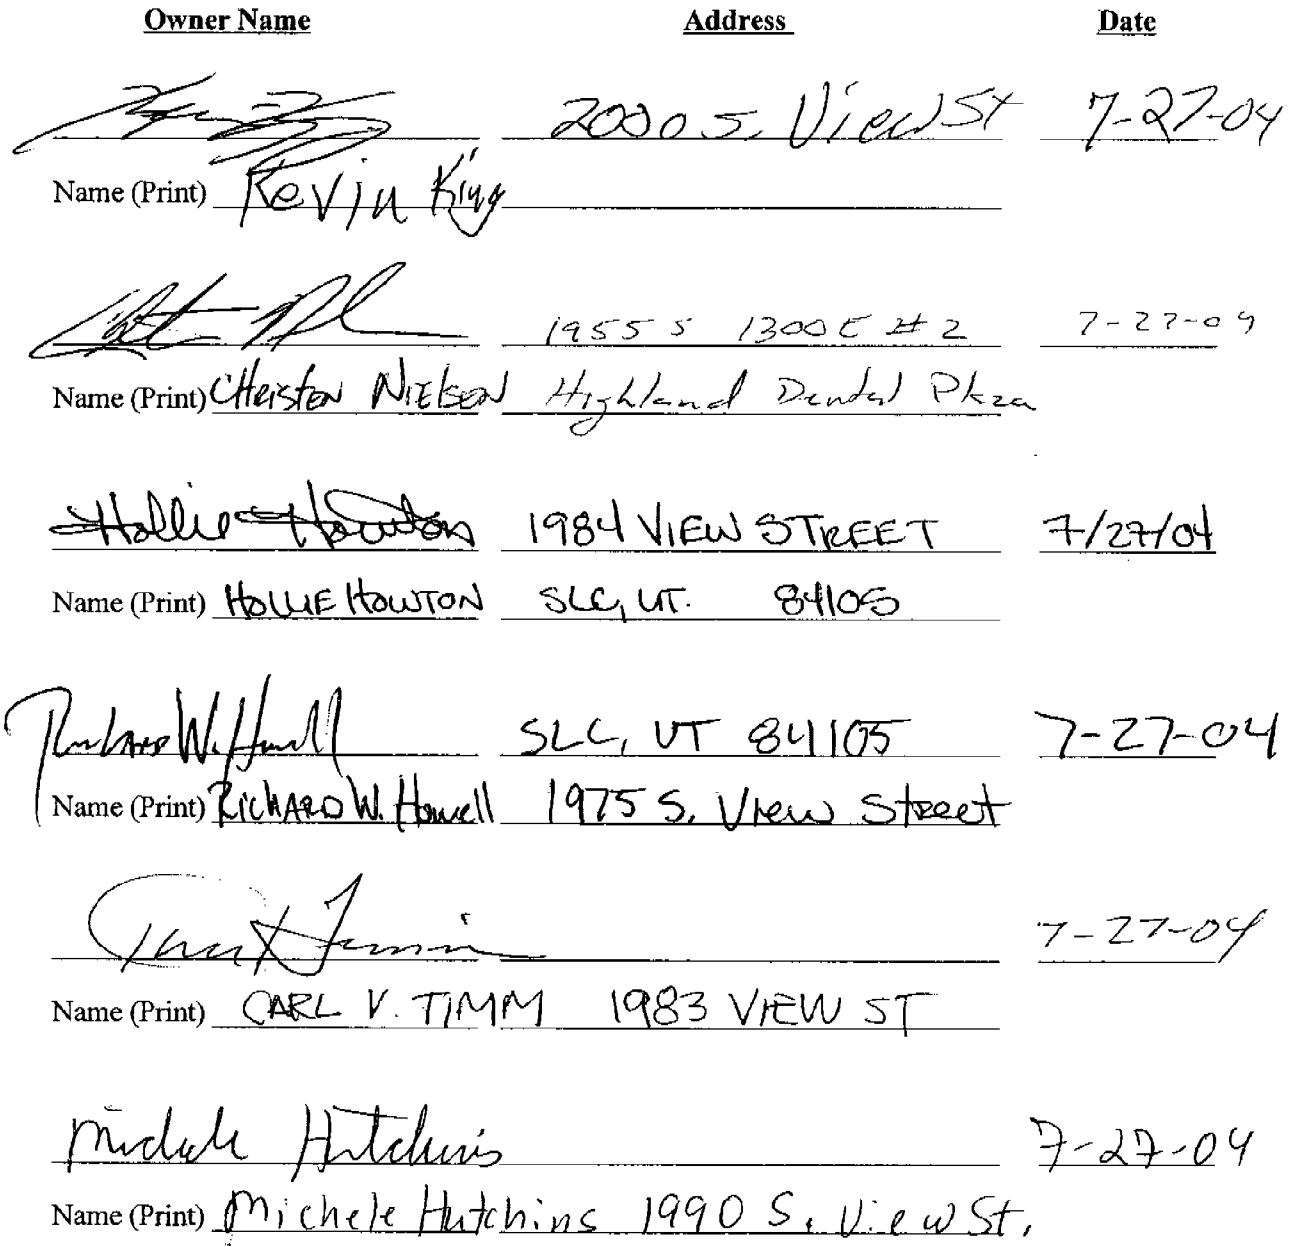 Owner Name Address Date
2000 S. View St 7-27-04
Name (Print) Kevin King
1955 S 1300 E #2 7-27-04
Name (Print) CHRISTEN NIELSEN Highland Dental Plaza
Hollie Howton 1984 VIEW STREET 7/27/04
Name (Print) HOLLIE HOWTON SLC, UT. 84105
Richard W. Howell SLC, UT 84105 7-27-04
Name (Print) RICHARD W. Howell 1975 S. View Street
7-27-04
Name (Print) CARL V. TIMM 1983 VIEW ST
Michele Hutchins 7-27-04
Name (Print) Michele Hutchins 1990 S. View St.